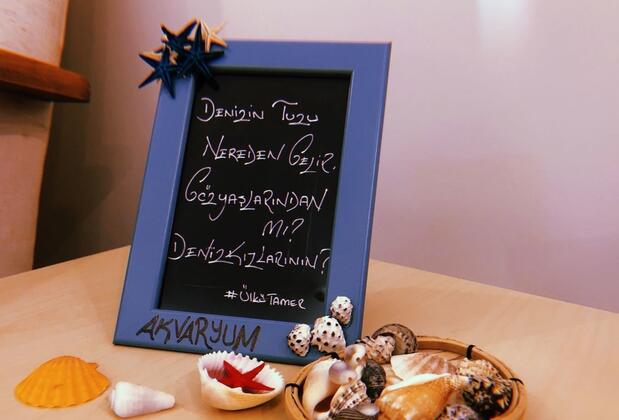 DENİZİN TUZU
NEREDEN GELİR.
GÖZYAŞLARINDAN
Mİ?
DENİZKIZLARININ?
#ÜLKÜTAMER
AKVARYUM